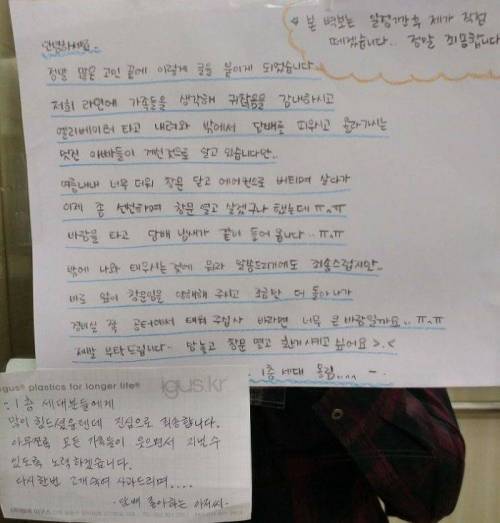 * 본 벽보는 일정기간후 제가 직접
떼겠습니다.. 정말 죄송합니다
안녕하세요
정말 많은 고민 끝에 이렇게 글을 붙이게 되었습니다..
저희 라인에 가족들을 생각해 귀찮음을 감내하시고
엘리베이터 타고 내려와 밖에서 담배를 피우시고 올라가시는
멋진 아빠들이 계신것으로 알고 있습니다만..
여름내내 너무 더워 창문 닫고 에어컨으로 버티며 살다가
이제 좀 선선하여 창문 열고 살겠구나 했는데 ㅠ.ㅠ
바람을 타고 담배 냄새가 끝이 들어 옵니다..ㅠ.ㅠ
밖에 나와 태우시는것에 뭐라 말씀드리기에도 죄송스럽지만..
바로 앞이 창문임을 생각해 주시고 조금만 더 돌아 나가
경비실 쪽 공터에서 태워 주십사 바라면 너무 큰 바람일까요.. ㅠ.ㅠ
제발 부탁드립니다. 맘놓고 창문 열고 환기시키고 싶어요 >.<
1층 세대 올림.... -.
igus® plastics for longer life®
igus.kr
: 1층 세대분들에게
많이 힘드셨을텐데 진심으로 죄송합니다.
아무쪼록 모든 가족들이 웃으면서 지낼 수
있도록 노력하겠습니다.
다시한번 고개숙여 사과드리며....
-담배 좋아하는 아저씨-